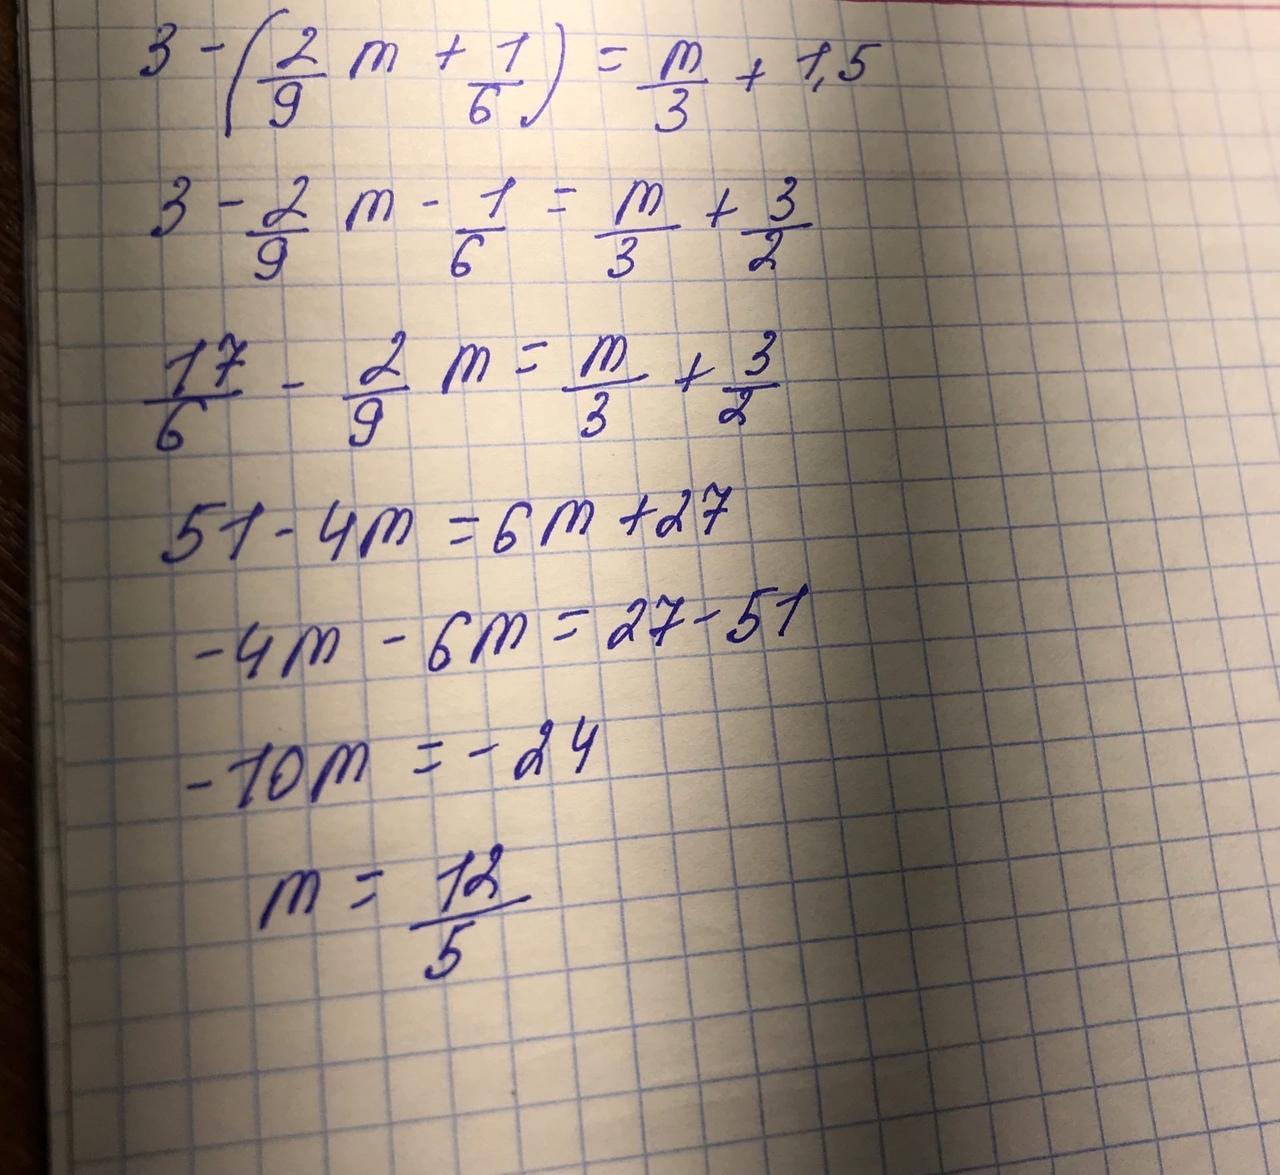 3 - (2/9 m + 1/6) = m/3 + 1,5
3 - 2/9 m - 1/6 = m/3 + 3/2
17/6 - 2/9 m = m/3 + 3/2
51 - 4m = 6m + 27
-4m - 6m = 27 - 51
-10m = -24
m = 12/5